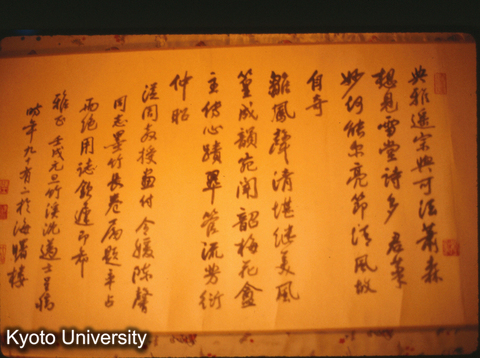 典雅遥宗與可法蕭森
想見雪堂詩多君筆
妙何能尔亮節清風故
自奇
雛鳳聲清堪繼美風
篁成韻宛聞韶梅花盦
主傳心蹟翠管流芳衍
仲昭
同教授画付令媛陳馨
同志墨竹長卷属題率占
两絶用誌欽遲即希
雅正 壬戌元旦竹溪沈邁士呈稿
時年九十有二於海曙楼
Kyoto University